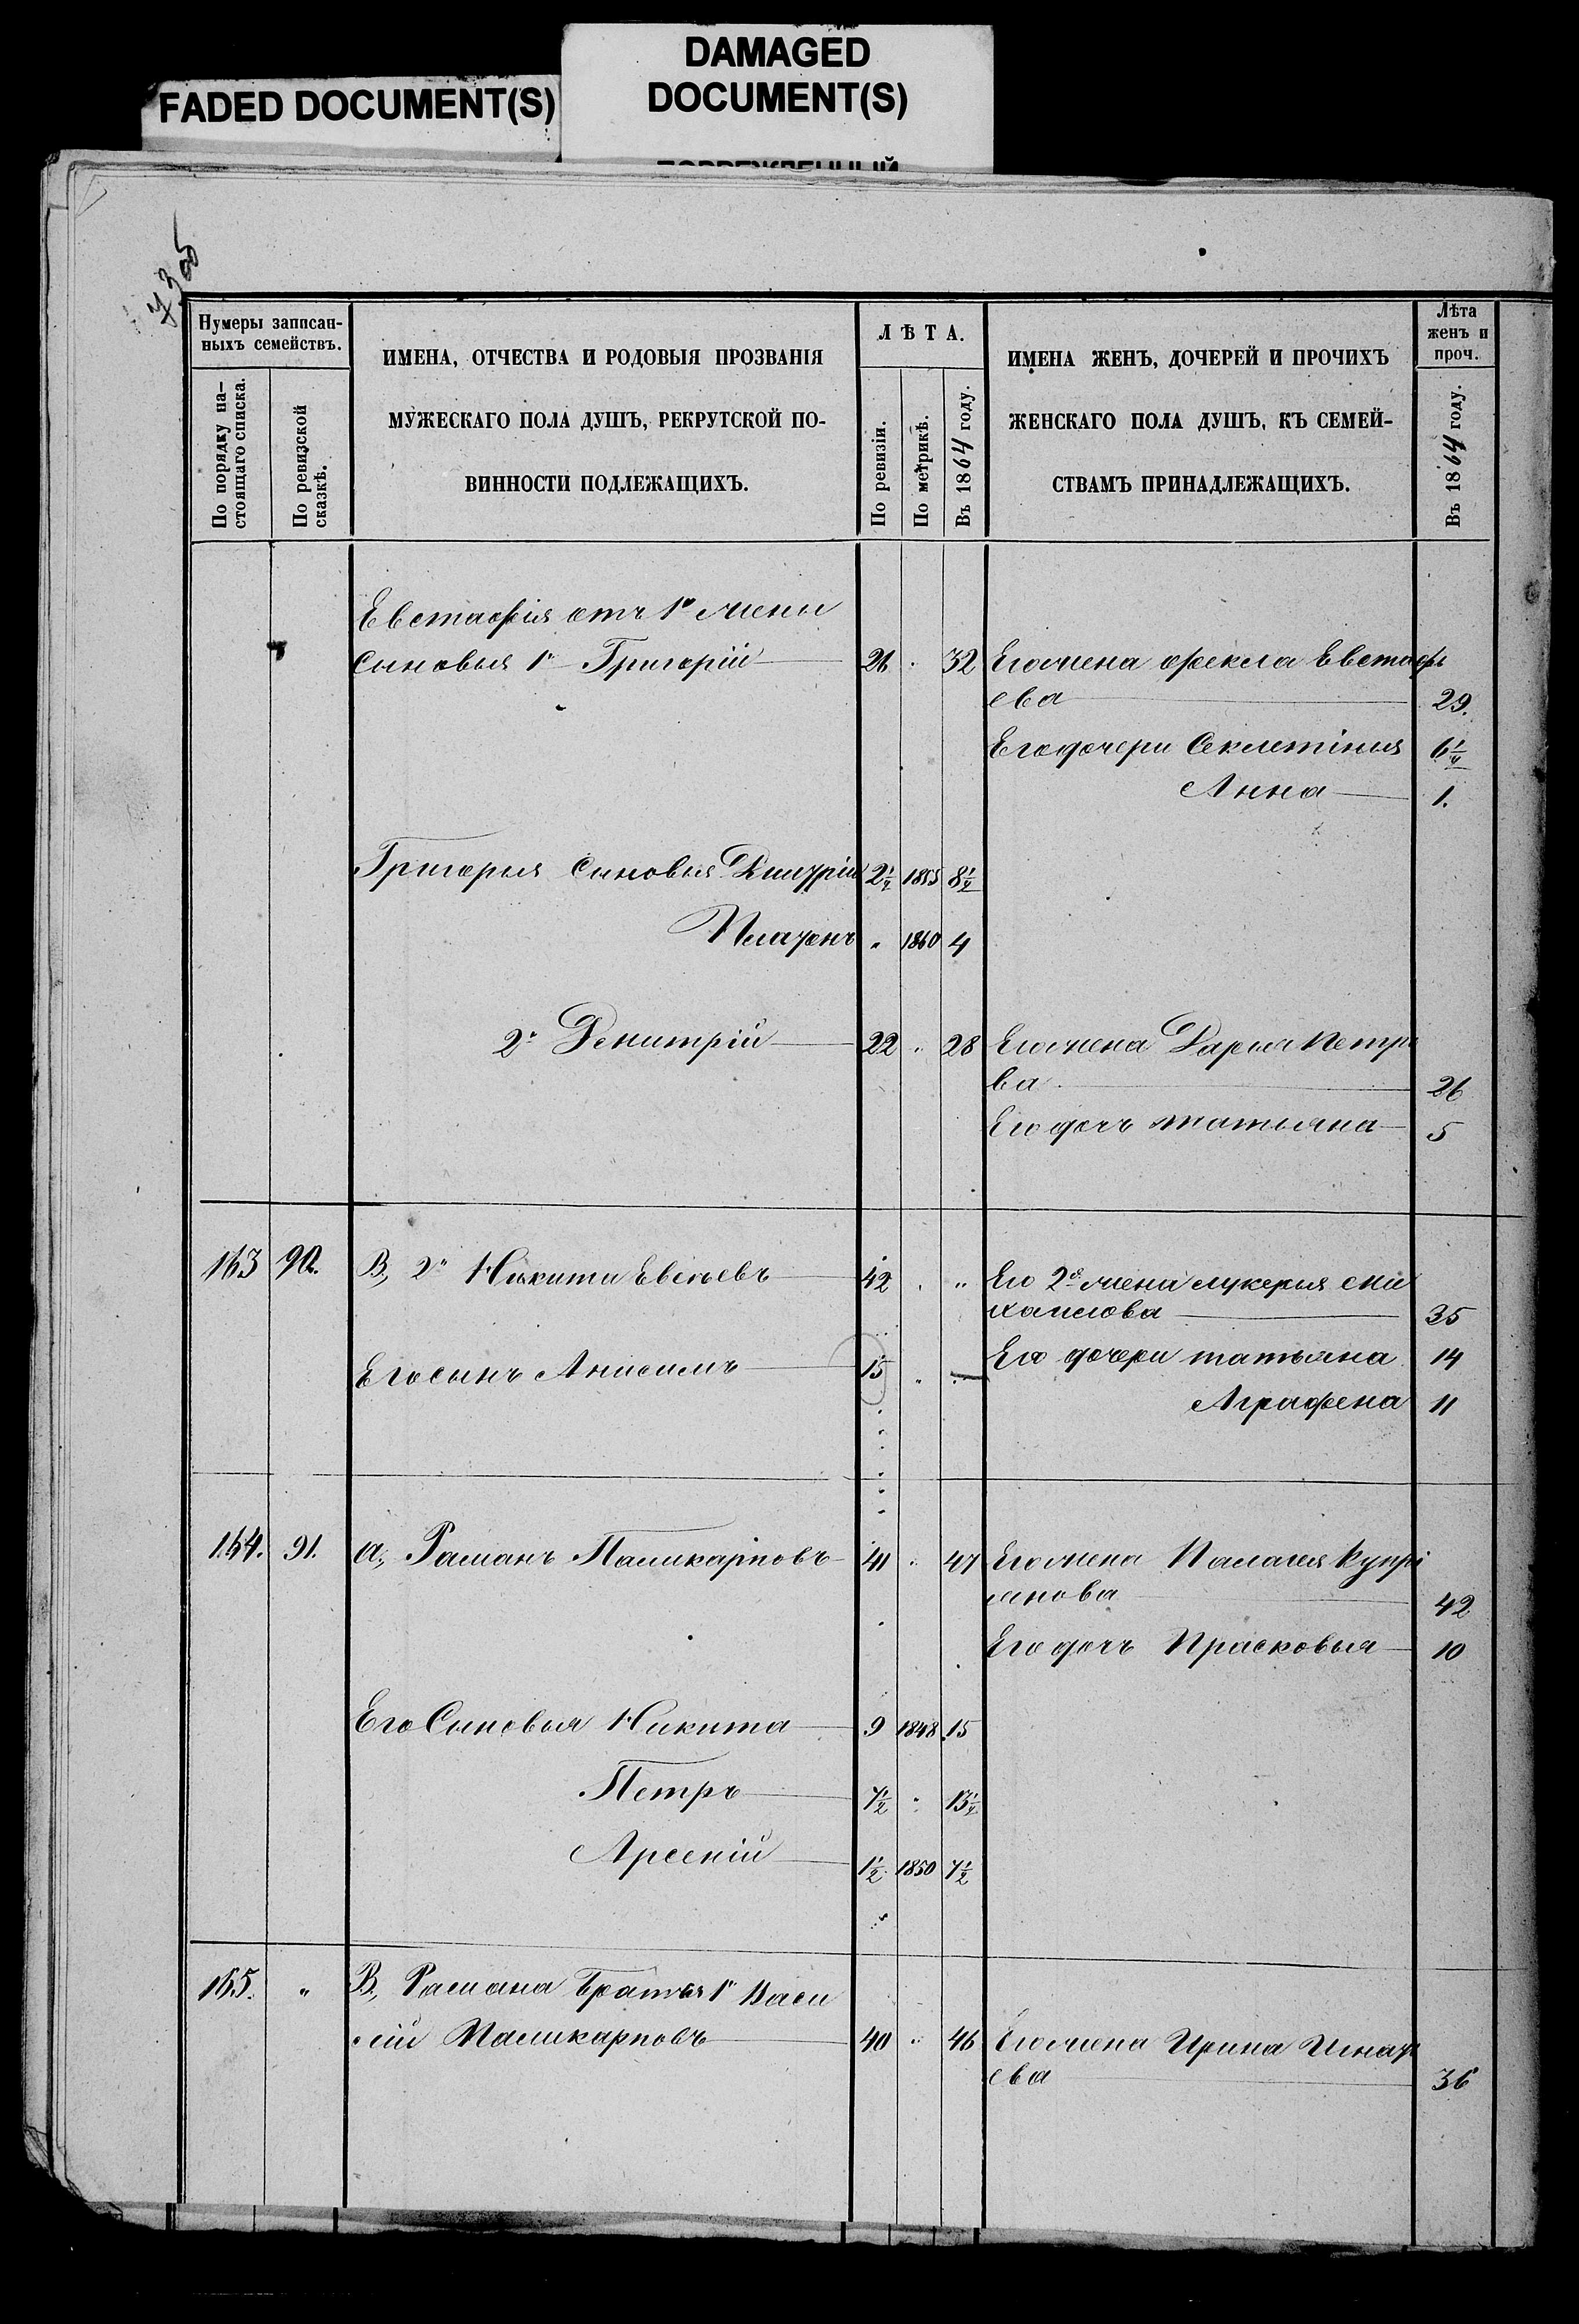 DAMAGED
DOCUMENT(S)
FADED DOCUMENT(S)
Нумеры записан-
ныхъ семействъ.
По порядку на-
стоящаго списка.
По ревизской
сказкѣ.
ИМЕНА, ОТЧЕСТВА И РОДОВЫЯ ПРОЗВАНІЯ
МУЖЕСКАГО ПОЛА ДУШЪ, РЕКРУТСКОЙ ПО-
ВИННОСТИ ПОДЛЕЖАЩИХЪ.
ЛѢТА.
По ревизіи.
По метрикѣ.
Въ 1864 году.
ИМЕНА ЖЕНЪ, ДОЧЕРЕЙ И ПРОЧИХЪ
ЖЕНСКАГО ПОЛА ДУШЪ, КЪ СЕМЕЙ-
СТВАМЪ ПРИНАДЛЕЖАЩИХЪ.
Лѣта
женъ и
проч.
Въ 1864 году.
Евстафія отъ 1й жены
Сыновья 1й Григорій 26 " 32 Его жена Фекла Евстафь
ева 29.
Его дочери Секлетінья
Анна 1.
Григорья Сыновья Дмитрій 1855
Платонъ " 1860 4
2й Демитрій 22 " 28 Его жена Дарья Петро
ва 26
Его дочь татьяна 5
163 90. В, 2й Никита Евсѣевъ 42 " " Его 2я жена лукерья ми
хаилова 35
Его сынъ Анисимъ 15 " Его дочери татьяна 14
Аграфена 11
164. 91. а, Раманъ Паликарповъ 41 " 47 Его жена Палагея Купрі
янова 42
Его дочь Прасковья 10
Его Сыновья Никита 9 1848 15
Петръ 7½ " 13½
Арсеній 1½ 1850 7½
165. " В, Рамана Братья 1й Васи
лій Паликарповъ 40 " 46 Его жена Ирина Игнать
ева 36